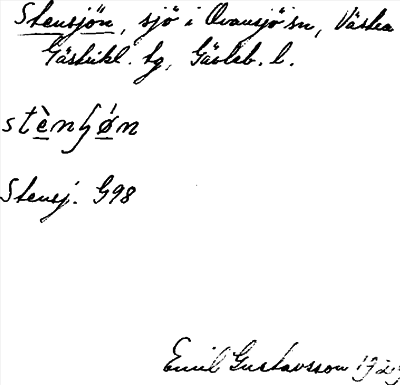 Stensjön, sjö i Ovansjö sn, Västra
Gästrikl. tg, Gävleb. l.
stènɧǿn
Stensj. G98
Emil Gustavsson